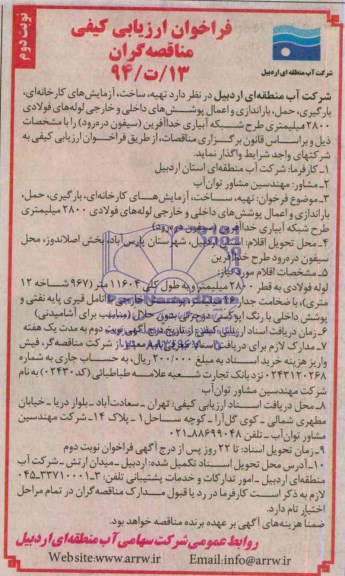 نوبت دوم
فراخوان ارزیابی کیفی
مناقصه‌گران
۱۳/ت/۹۴
شرکت آب منطقه‌ای اردبیل
شرکت آب منطقه‌ای اردبیل در نظر دارد تهیه، ساخت، آزمایش‌های کارخانه‌ای،
بارگیری، حمل، باراندازی و اعمال پوشش‌های داخلی و خارجی لوله‌های فولادی
۲۸۰۰ میلیمتری طرح شبکه آبیاری خداآفرین (سیفون دره‌رود) را با مشخصات
ذیل و براساس قانون برگزاری مناقصات، از طریق فراخوان ارزیابی کیفی به
شرکتهای واجد شرایط واگذار نماید.
۱ـ کارفرما: شرکت آب منطقه‌ای استان اردبیل
۲ـ مشاور: مهندسین مشاور توان‌آب
۳ـ موضوع فرخوان: تهیه، ساخت، آزمایش‌های کارخانه‌ای، بارگیری، حمل،
باراندازی و اعمال پوشش‌های داخلی و خارجی لوله‌های فولادی ۲۸۰۰ میلیمتری
طرح شبکه آبیاری خداآفرین (سیفون دره‌رود)
۴ـ محل تحویل اقلام: استان اردبیل، شهرستان پارس‌آباد، بخش اصلاندوز، محل
سیفون دره‌رود طرح خداآفرین
۵ـ مشخصات اقلام مورد نیاز:
لوله فولادی به قطر ۲۸۰۰ میلیمتر و به طول کلی ۱۱۶۰۴ متر (۹۶۷ شاخه ۱۲
متری)، با ضخامت جدار پوشش خارجی قیری پایه نفتی و
پوشش داخلی با رنگ اپوکسی دوجزئی بدون حلال (مناسب برای آشامیدنی)
۶ـ زمان دریافت اسناد ارزیابی کیفی: از تاریخ درج آگهی نوبت دوم به مدت یک هفته
۷ـ مدارک لازم برای دریافت اسناد: معرفی‌نامه معتبر از شرکت مناقصه‌گر، فیش
واریز هزینه خرید اسناد به مبلغ ۲۰۰/۰۰۰ ریال، به حساب جاری به شماره
۰۲۴۳۱۲۰۲۶۸ نزد بانک تجارت شعبه علامه طباطبائی (کد ۰۲۴۳۰) به نام
شرکت مهندسین مشاور توان‌آب
۸ـ محل دریافت اسناد ارزیابی کیفی: تهران ـ سعادت‌آباد ـ بلوار دریا ـ خیابان
مطهری شمالی ـ کوی گل‌آرا ـ کوچه ساحل۱ ـ پلاک ۱۴ـ شرکت مهندسین
مشاور توان‌آب ـ تلفن ۸۸۶۹۹۰۴۸ـ۰۲۱
۹ـ زمان تحویل اسناد: تا ۲۲ روز پس از درج آگهی فراخوان نوبت دوم
۱۰ـ آدرس محل تحویل اسناد تکمیل شده: اردبیل ـ میدان ارتش ـ شرکت آب
منطقه‌ای اردبیل ـ امور تدارکات و خدمات پشتیبانی تلفن: ۳ـ۳۳۷۱۰۰۰۱ـ۰۴۵
لازم به ذکر است کارفرما در رد یا قبول مدارک مناقصه‌گران در تمام مراحل
اختیار تام دارد.
ضمناً هزینه‌های آگهی بر عهده برنده مناقصه خواهد بود.
روابط عمومی شرکت سهامی آب منطقه‌ای اردبیل
Website:www.arrw.ir Email:info@arrw.ir